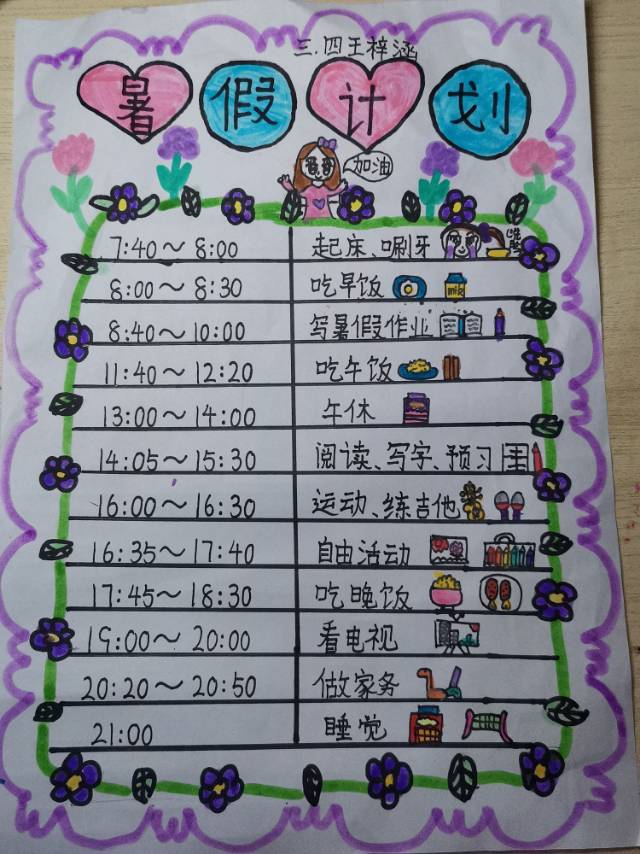 三.四王梓涵
暑假计划
加油
7:40～8:00 起床、唰牙
8:00～8:30 吃早饭
milk
8:40～10:00 写暑假作业
11:40～12:20 吃午饭
13:00～14:00 午休
14:05～15:30 阅读、写字、预习
16:00～16:30 运动、练吉他
16:35～17:40 自由活动
17:45～18:30 吃晚饭
19:00～20:00 看电视
20:20～20:50 做家务
21:00 睡觉